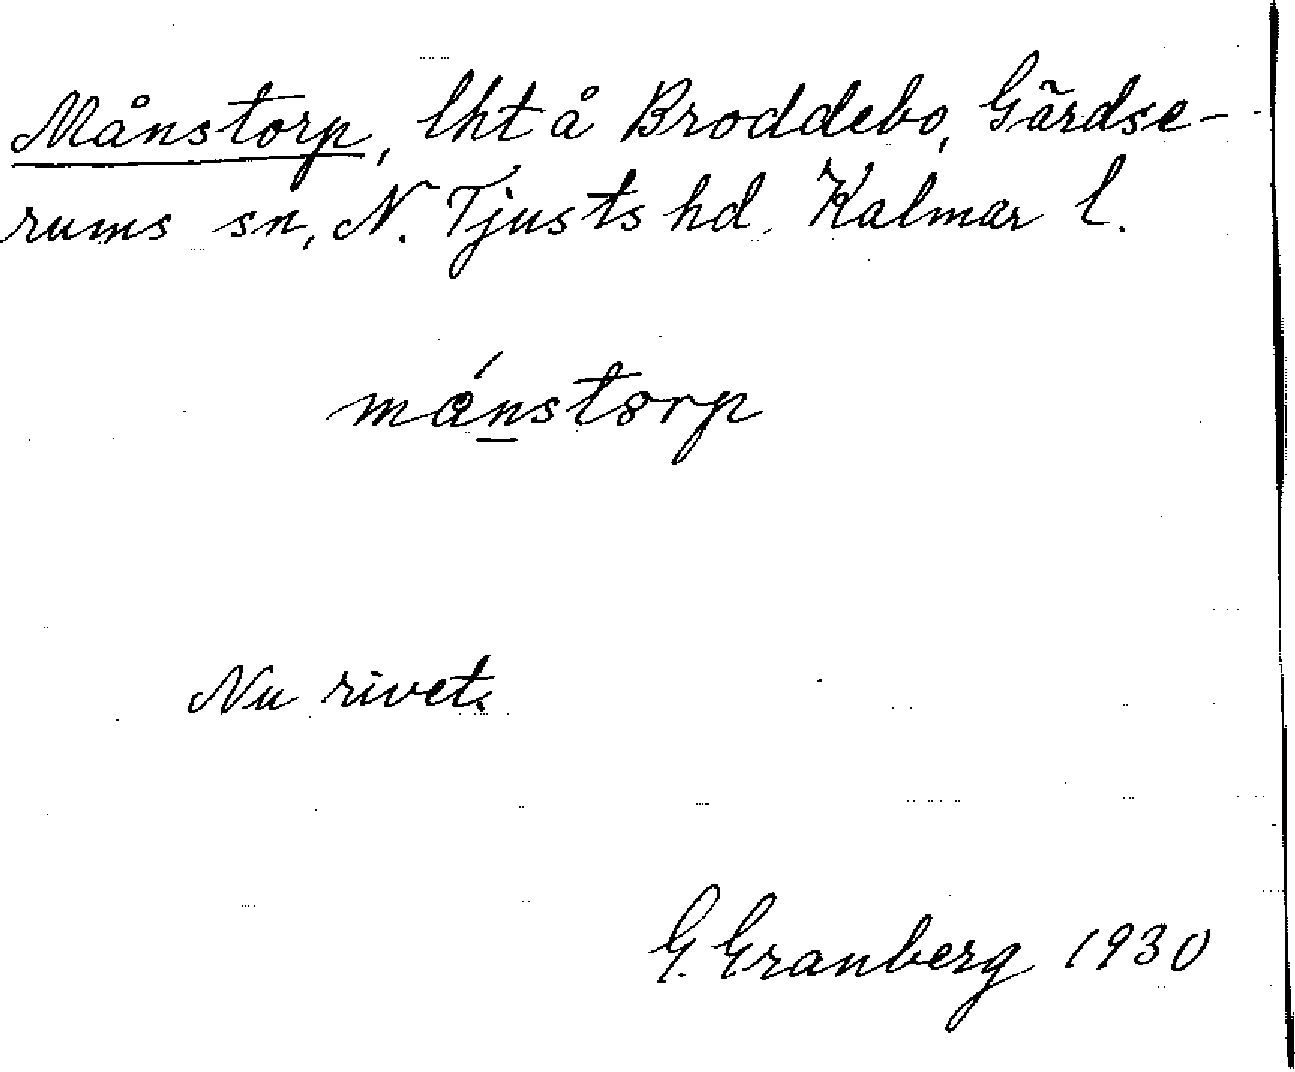 Månstorp, lht å Broddebo, Gärdse-
rums sn, N. Tjusts hd, Kalmar l.
månstorp
Nu rivet.
G. Granberg 1930